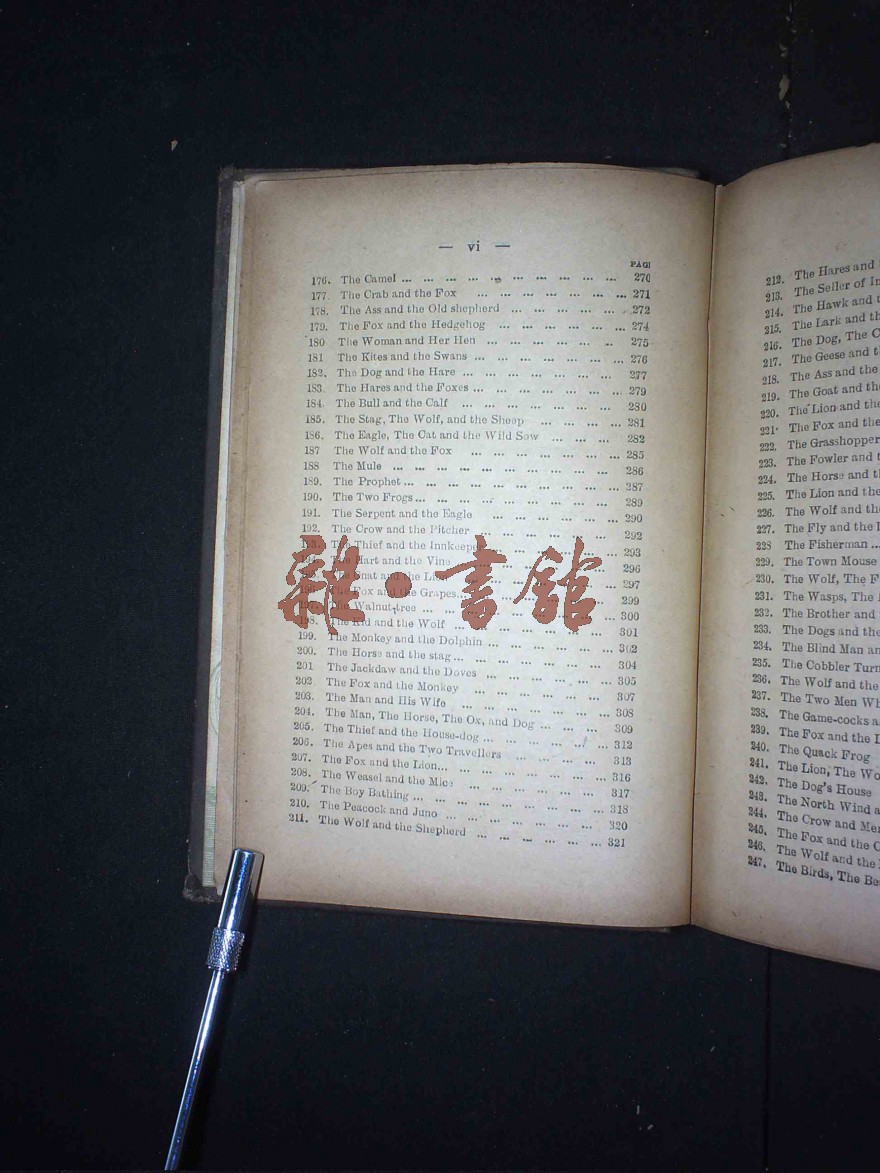 — vi —
PAGE
176. The Camel ... ... ... ... ... ... ... ... ... ... 270
177. The Crab and the Fox ... ... ... ... ... ... ... 271
178. The Ass and the Old shepherd ... ... ... ... ... 272
179. The Fox and the Hedgehog ... ... ... ... ... ... 274
180 The Woman and Her Hen ... ... ... ... ... ... 275
181 The Kites and the Swans ... ... ... ... ... ... ... 276
182. The Dog and the Hare ... ... ... ... ... ... ... 277
183. The Hares and the Foxes ... ... ... ... ... ... ... 279
184. The Bull and the Calf ... ... ... ... ... ... ... 280
185. The Stag, The Wolf, and the Sheep ... ... ... ... 281
186. The Eagle, The Cat and the Wild Sow ... ... ... 282
187 The Wolf and the Fox ... ... ... ... ... ... ... 285
188 The Mule ... ... ... ... ... ... ... ... ... ... 286
189. The Prophet ... ... ... ... ... ... ... ... ... 287
190. The Two Frogs ... ... ... ... ... ... ... ... ... 289
191. The Serpent and the Eagle ... ... ... ... ... ... 290
192. The Crow and the Pitcher ... ... ... ... ... ... 292
193. The Thief and the Innkeeper ... ... ... ... ... 293
The Hart and the Vine ... ... ... ... ... ... 296
The Gnat and the ... ... ... ... ... ... 297
The Fox and the Grapes ... ... ... ... ... ... 299
197. The Walnut-tree ... ... ... ... ... ... ... ... 300
198. The Kid and the Wolf ... ... ... ... ... ... ... 301
199. The Monkey and the Dolphin ... ... ... ... ... ... 302
200. The Horse and the stag ... ... ... ... ... ... ... 304
201 The Jackdaw and the Doves ... ... ... ... ... ... 305
202. The Fox and the Monkey ... ... ... ... ... ... 307
203. The Man and His Wife ... ... ... ... ... ... ... 308
204. The Man, The Horse, The Ox, and Dog ... ... ... 309
205. The Thief and the House-dog ... ... ... ... ... ... 312
206. The Apes and the Two Travellers ... ... ... ... 313
207. The Fox and the Lion ... ... ... ... ... ... ... 316
208. The Weasel and the Mice ... ... ... ... ... ... 317
209. The Boy Bathing ... ... ... ... ... ... ... ... 318
210. The Peacock and Juno ... ... ... ... ... ... ... 320
211. The Wolf and the Shepherd ... ... ... ... ... ... 321
雜·書舘
212. The Hares and
213. The Seller of
214. The Hawk and
215. The Lark and
216. The Dog, The
217. The Geese and
218. The Ass and the
219. The Goat and the
220. The Lion and the
221. The Fox and the
222. The Grasshopper
223. The Fowler and
224. The Horse and
225. The Lion and the
226. The Wolf and the
227. The Fly and the
228 The Fisherman ...
229. The Town Mouse
230. The Wolf, The
231. The Wasps, The
232. The Brother and
233. The Dogs and the
234. The Blind Man
235. The Cobbler
236. The Wolf and the
237. The Two Men
238. The Game-cocks
239. The Fox and the
240. The Quack Frog
241. The Lion, The
242. The Dog's House
243. The North Wind
244. The Crow and
245. The Fox and the
246. The Wolf and the
247. The Birds, The